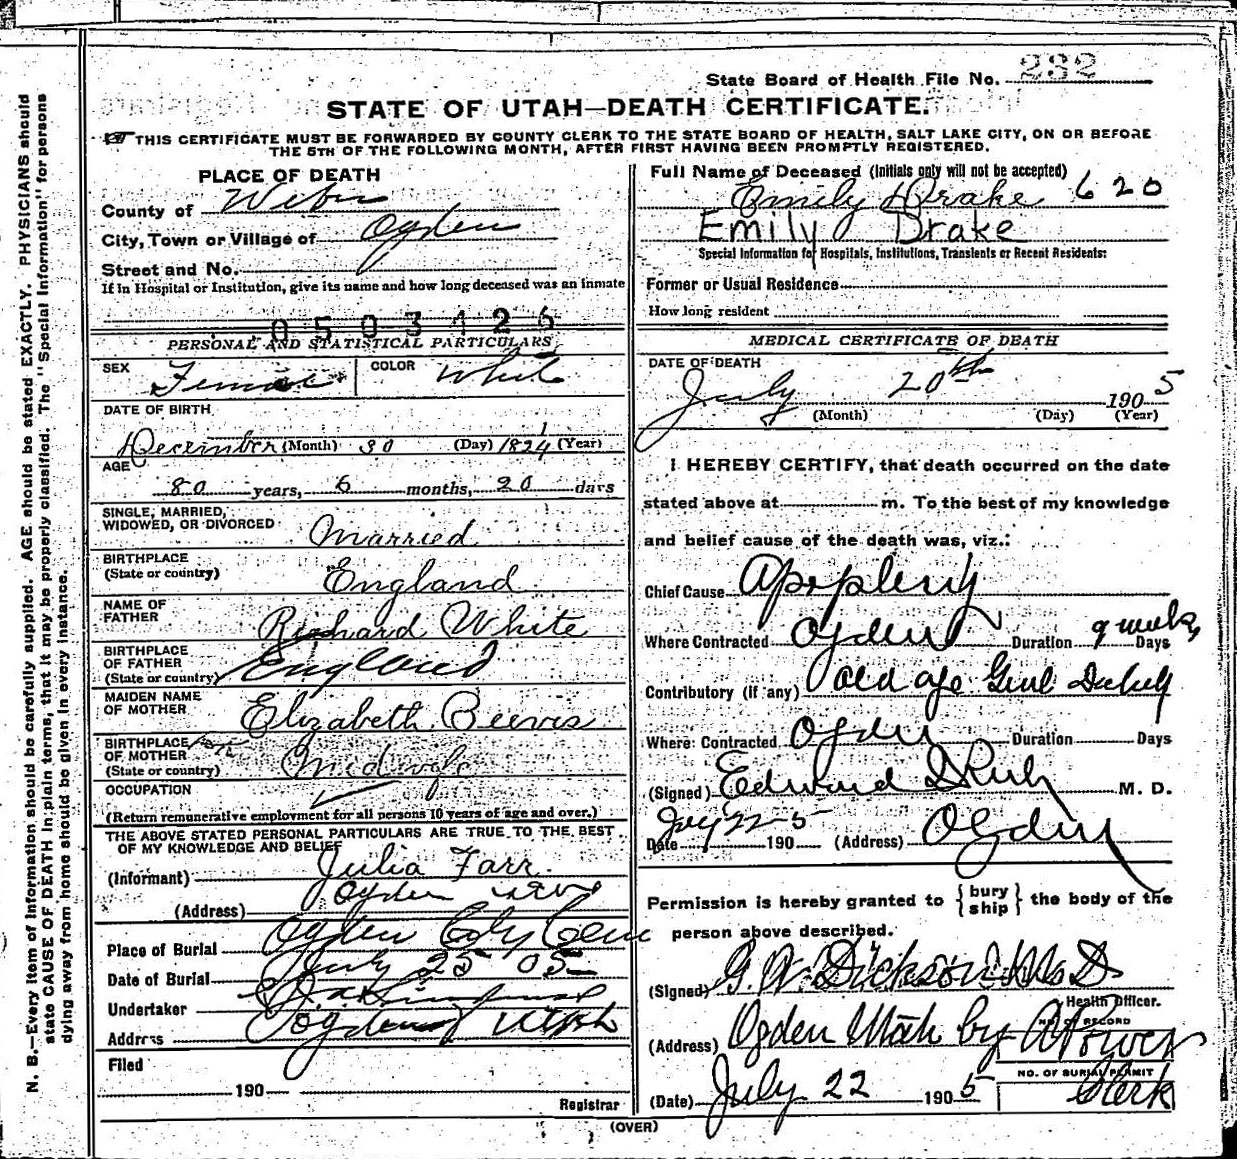 State Board of Health File No. 232
STATE OF UTAH—DEATH CERTIFICATE.
THIS CERTIFICATE MUST BE FORWARDED BY COUNTY CLERK TO THE STATE BOARD OF HEALTH, SALT LAKE CITY, ON OR BEFORE
THE 5TH OF THE FOLLOWING MONTH, AFTER FIRST HAVING BEEN PROMPTLY REGISTERED.
N. B.—Every item of information should be carefully supplied. AGE should be stated EXACTLY. PHYSICIANS should
state CAUSE OF DEATH in plain terms, that it may be properly classified. The "Special Information" for persons
dying away from home should be given in every instance.
PLACE OF DEATH
County of Weber
City, Town or Village of Ogden
Street and No.
If in Hospital or Institution, give its name and how long deceased was an inmate
0503426
PERSONAL AND STATISTICAL PARTICULARS
SEX Female COLOR White
DATE OF BIRTH
December (Month) 30 (Day) 1824 (Year)
AGE
80 years, 6 months, 20 days
SINGLE, MARRIED,
WIDOWED, OR DIVORCED Married
BIRTHPLACE
(State or country) England
NAME OF
FATHER Richard White
BIRTHPLACE
OF FATHER
(State or country) England
MAIDEN NAME
OF MOTHER Elizabeth Beeves
BIRTHPLACE
OF MOTHER
(State or country) Midwife
OCCUPATION
(Return remunerative employment for all persons 10 years of age and over.)
THE ABOVE STATED PERSONAL PARTICULARS ARE TRUE TO THE BEST
OF MY KNOWLEDGE AND BELIEF
(Informant) Julia Farr
(Address) Ogden
Place of Burial Ogden City Cem
Date of Burial July 25 05
Undertaker
Address Ogden Utah
Filed
190
Registrar
Full Name of Deceased (Initials only will not be accepted)
Emily Drake 620
Emily Drake
Special Information for Hospitals, Institutions, Transients or Recent Residents:
Former or Usual Residence
How long resident
MEDICAL CERTIFICATE OF DEATH
DATE OF DEATH
July 20th 1905
(Month) (Day) (Year)
I HEREBY CERTIFY, that death occurred on the date
stated above at m. To the best of my knowledge
and belief cause of the death was, viz.:
Chief Cause Apoplexy
Where Contracted Ogden Duration 9 weeks Days
Contributory (if any) Old age Genl Debility
Where Contracted Ogden Duration Days
(Signed) Edward I Rich M. D.
Date July 22-5 190 (Address) Ogden
Permission is hereby granted to {bury
ship} the body of the
person above described.
(Signed) G. W. Dickson M D
Health Officer.
NO. OF RECORD
(Address) Ogden Utah by
NO. OF BURIAL PERMIT
Clerk
(Date) July 22 1905
(OVER)